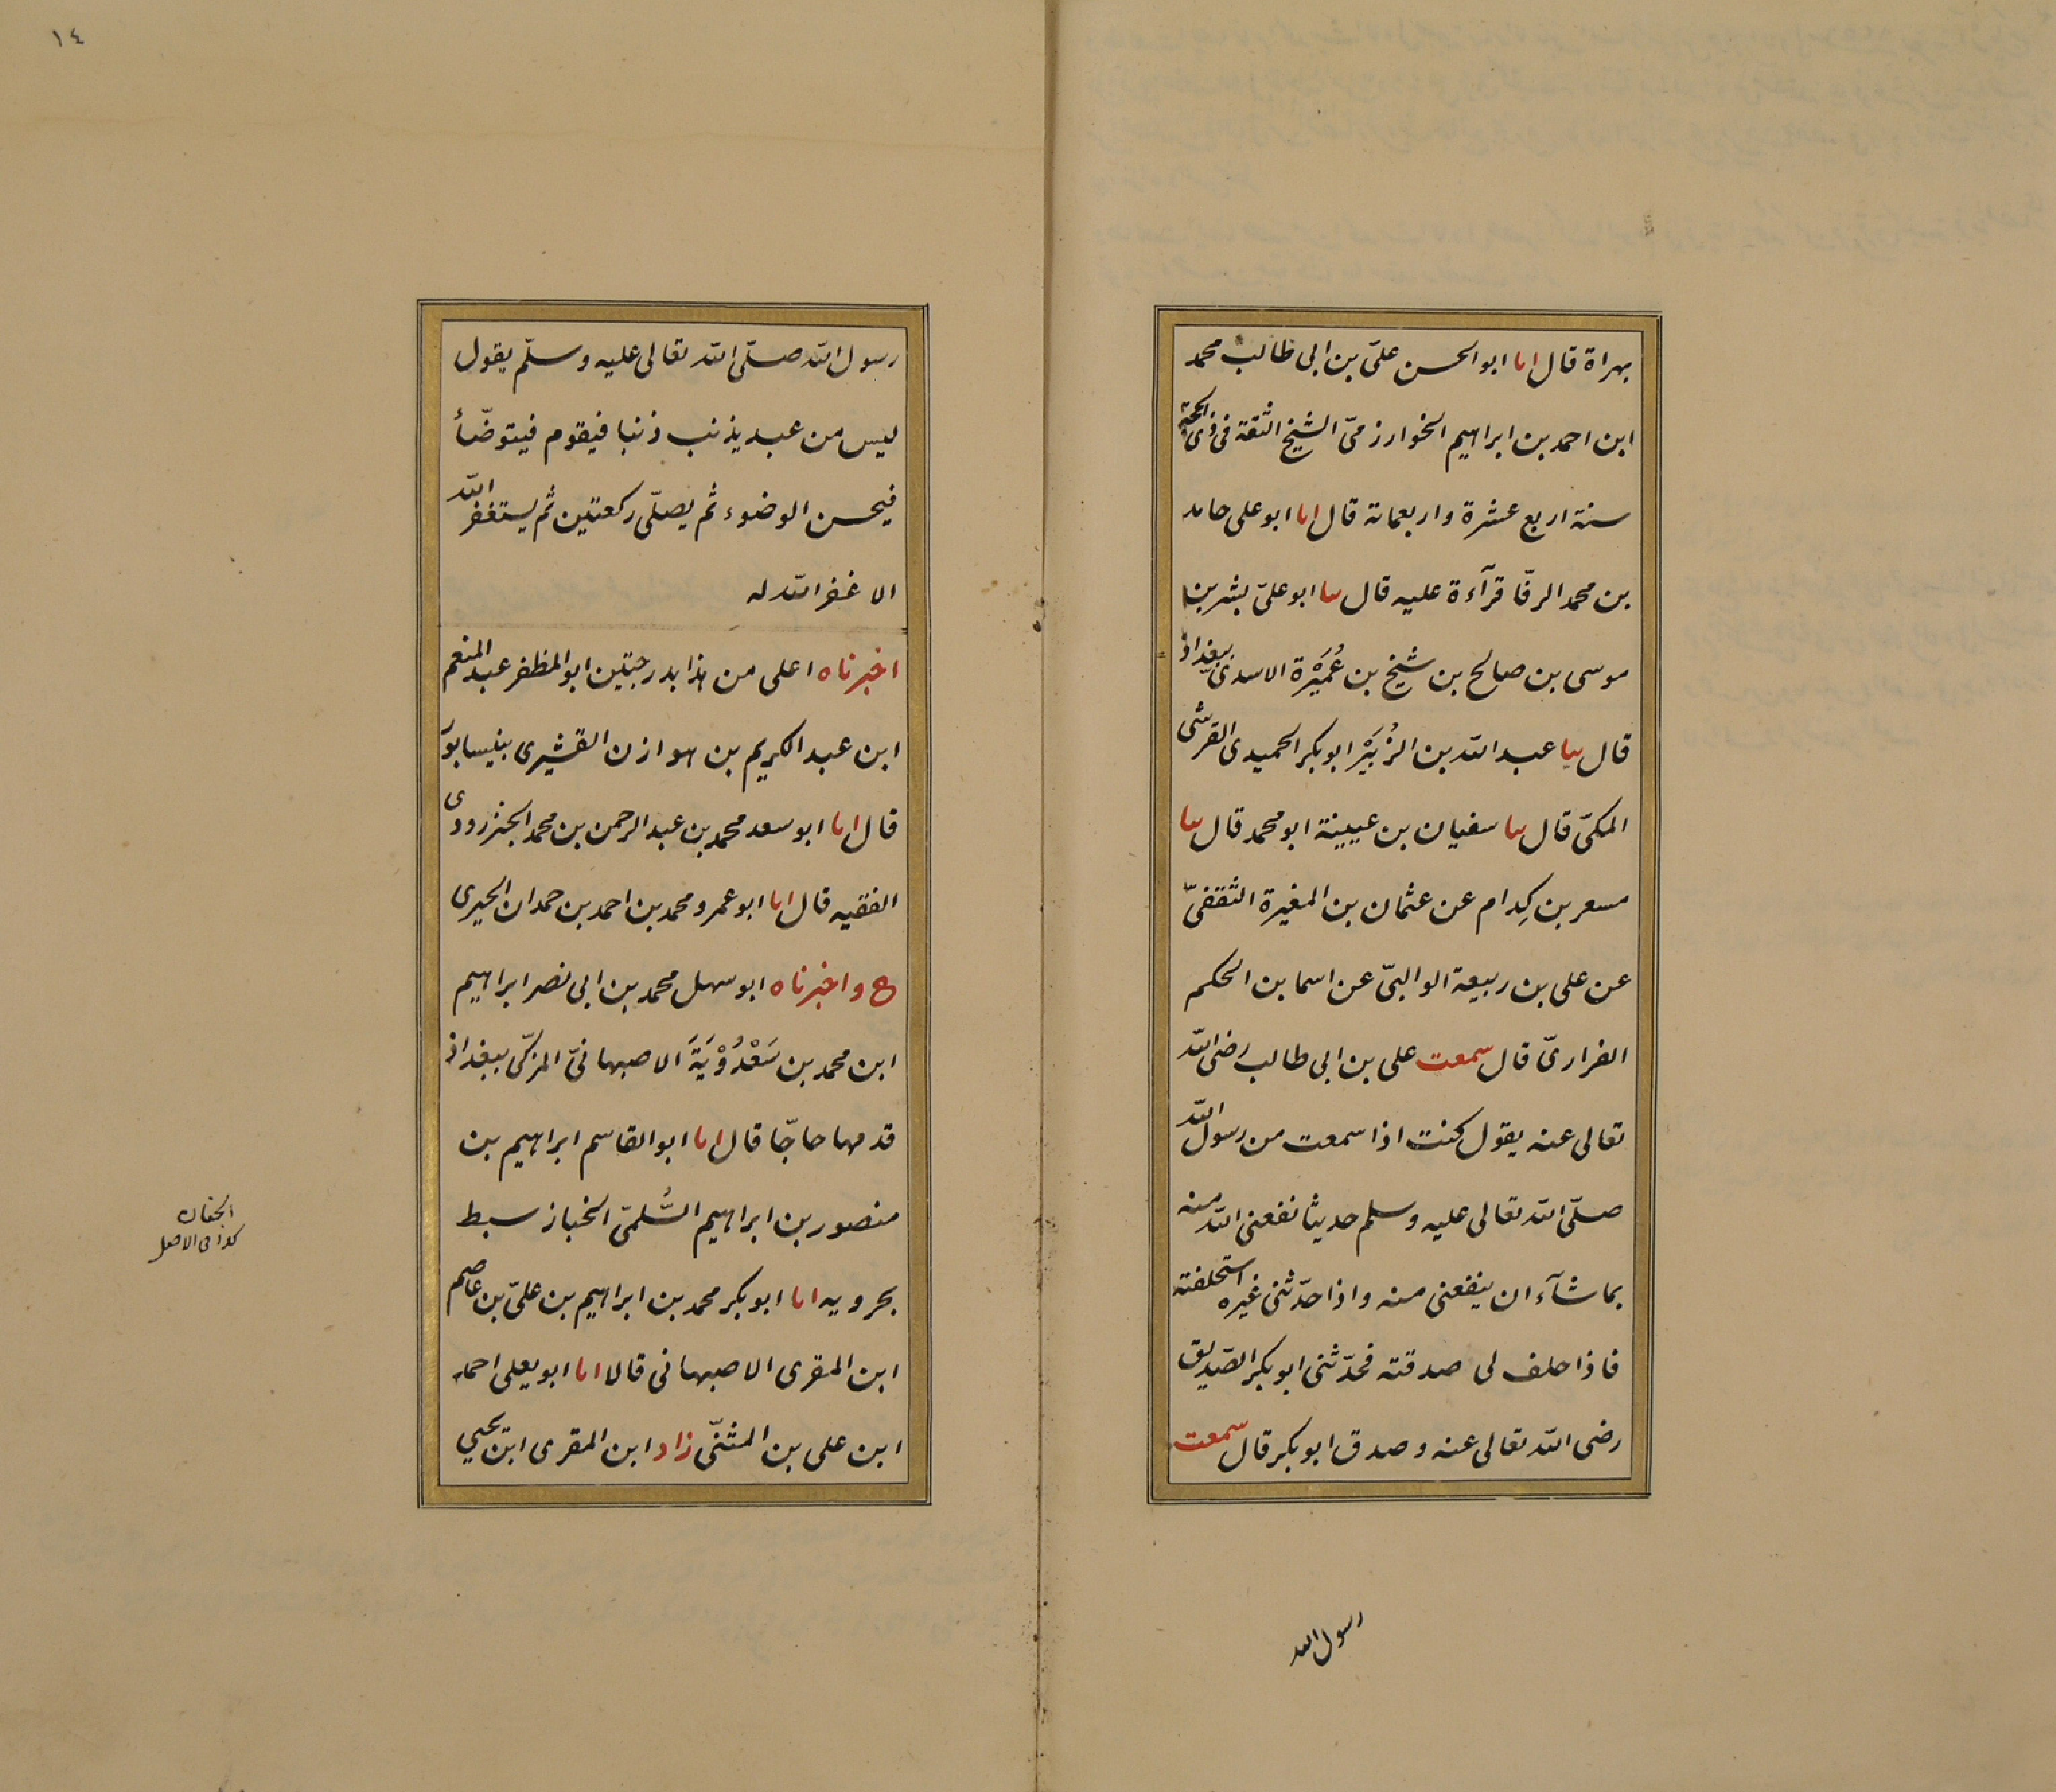 بهراة قال انا ابو الحسن علىّ بن ابى طالب محمد
ابن احمد بن ابراهيم الخوارزمىّ الشيخ الثقة فى ذى الحجة
سنة اربع عشرة واربعمائة قال انا ابو على حامد
بن محمد الرفّا قرآءة عليه قال ثنا ابو علىّ بشر بن
موسى بن صالح بن شيخ بن عُمَيْرَة الاسدىّ ببغداذ
قال ثنا عبد الله بن الزُبَيْر ابو بكر الحميدى القرشى
المكىّ قال ثنا سفيان بن عيينة ابو محمد قال ثنا
مسعر بن كِدام عن عثمان بن المغيرة الثقفىّ
عن على بن ربيعة الوالبىّ عن اسما بن الحكم
الفزارىّ قال سمعت على بن ابى طالب رضى الله
تعالى عنه يقول كنت اذا سمعت من رسول الله
صلّى الله تعالى عليه وسلم حديثا نفعنى الله منه
بما شآء ان ينفعنى منه واذا حدّثنى غيره استحلفته
فاذا حلف لى صدقته فحدّثنى ابو بكر الصّديق
رضى الله تعالى عنه وصدق ابو بكر قال سمعت
رسول الله
١٤
رسول الله صلّى الله تعالى عليه وسلّم يقول
ليس من عبد يذنب ذنبا فيقوم فيتوضّأ
فيحسن الوضوء ثم يصلّى ركعتين ثم يستغفر الله
الا غفر الله له
اخبرناه اعلى من هذا بدرجتين ابو المظفر عبد المنعم
ابن عبد الكريم بن هوازن القشيرى بنيسابور
قال انا ابو سعد محمد بن عبد الرحمن بن محمد الجنزرودى
الفقيه قال انا ابو عمرو محمد بن احمد بن حمدان الحيرى
ح واخبرناه ابو سهل محمد بن ابى نصر ابراهيم
ابن محمد بن سَعْدُوْيَةَ الاصبهانىّ المزكّى ببغداذ
قدمها حاجّا قال انا ابو القاسم ابراهيم بن
منصور بن ابراهيم السُّلمىّ الخباز سبط
بحرويه انا ابو بكر محمد بن ابراهيم بن علىّ بن عاصم
ابن المقرى الاصبهانى قالا انا ابو يعلى احمد
ابن على بن المثنّى زاد ابن المقرى ابن يحيى
كذا فى الاصل